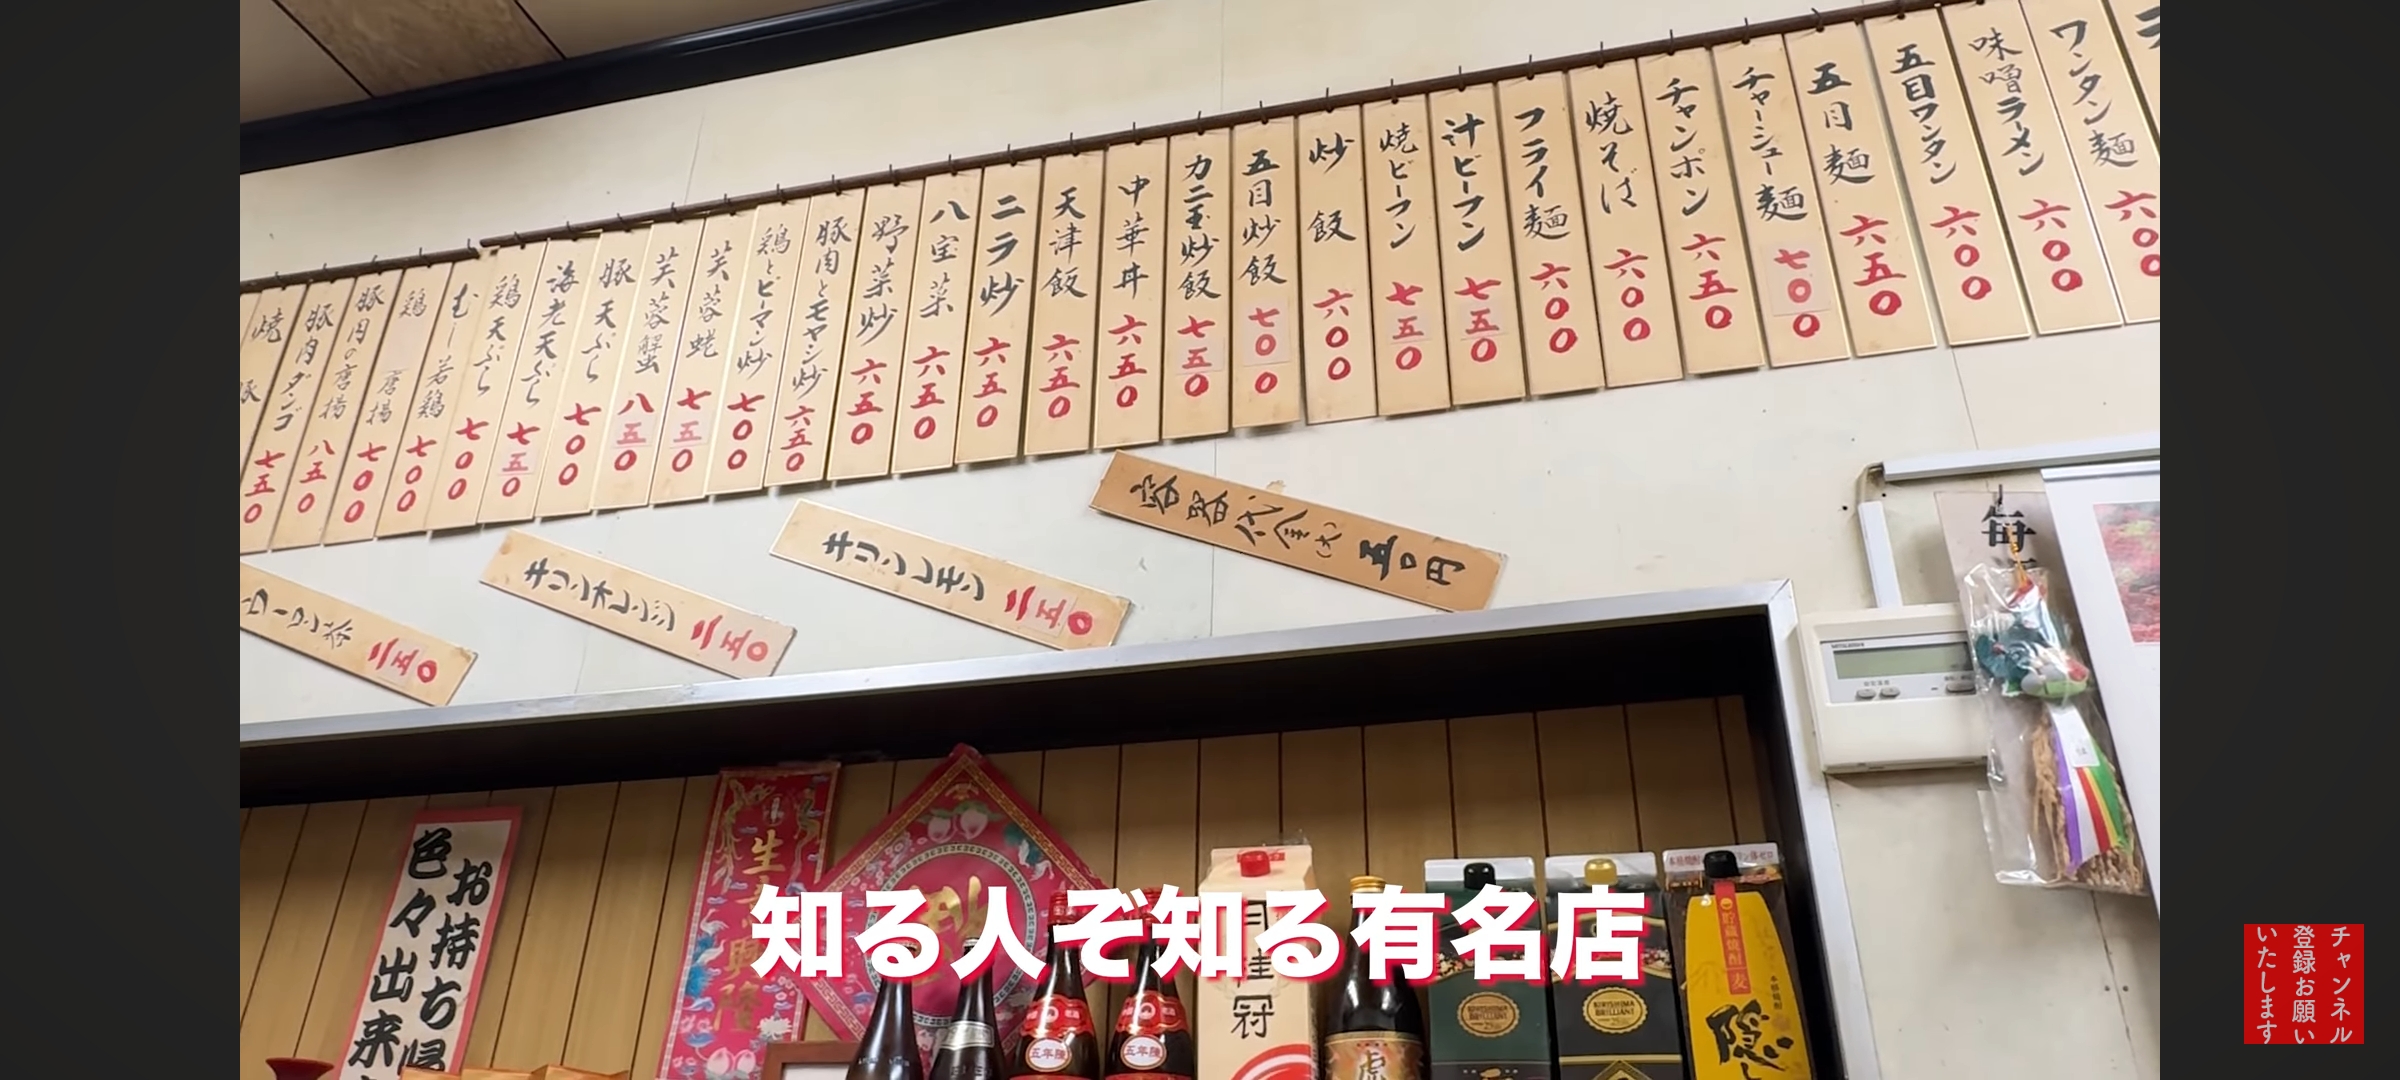 ワンタン麺 六〇
味噌ラーメン 六〇〇
五目ワンタン 六〇〇
五目麺 六五〇
チャーシュー麺 七〇〇
チャンポン 六五〇
焼そば 六〇〇
フライ麺 六〇〇
汁ビーフン 七五〇
焼ビーフン 七五〇
炒飯 六〇〇
五目炒飯 七〇〇
カニ玉炒飯 七五〇
中華丼 六五〇
天津飯 六五〇
ニラ炒 六五〇
八宝菜 六五〇
野菜炒 六五〇
豚肉とモヤシ炒 六五〇
鶏とピーマン炒 七〇〇
芙蓉蛯 七五〇
芙蓉蟹 八五〇
豚天ぷら 七〇〇
海老天ぷら 七五〇
鶏天ぷら 七〇〇
むし若鶏 七〇〇
鶏唐揚 七〇〇
豚肉の唐揚 八五〇
豚肉ダンゴ 七五〇
焼豚
容器代金(大) 五〇円
キリンレモン 二五〇
キリンオレンジ 二五〇
ウーロン茶 二五〇
毎
MITSUBISHI
お持ち帰
色々出来
生
興隆
五年陳
五年陳
月桂冠
虎
KIRISHIMA
BRILLIANT
25%
KIRISHIMA
BRILLIANT
25%
本格焼酎
貯蔵焼酎
麦
隠し
知る人ぞ知る有名店
チャンネル
登録お願い
いたします